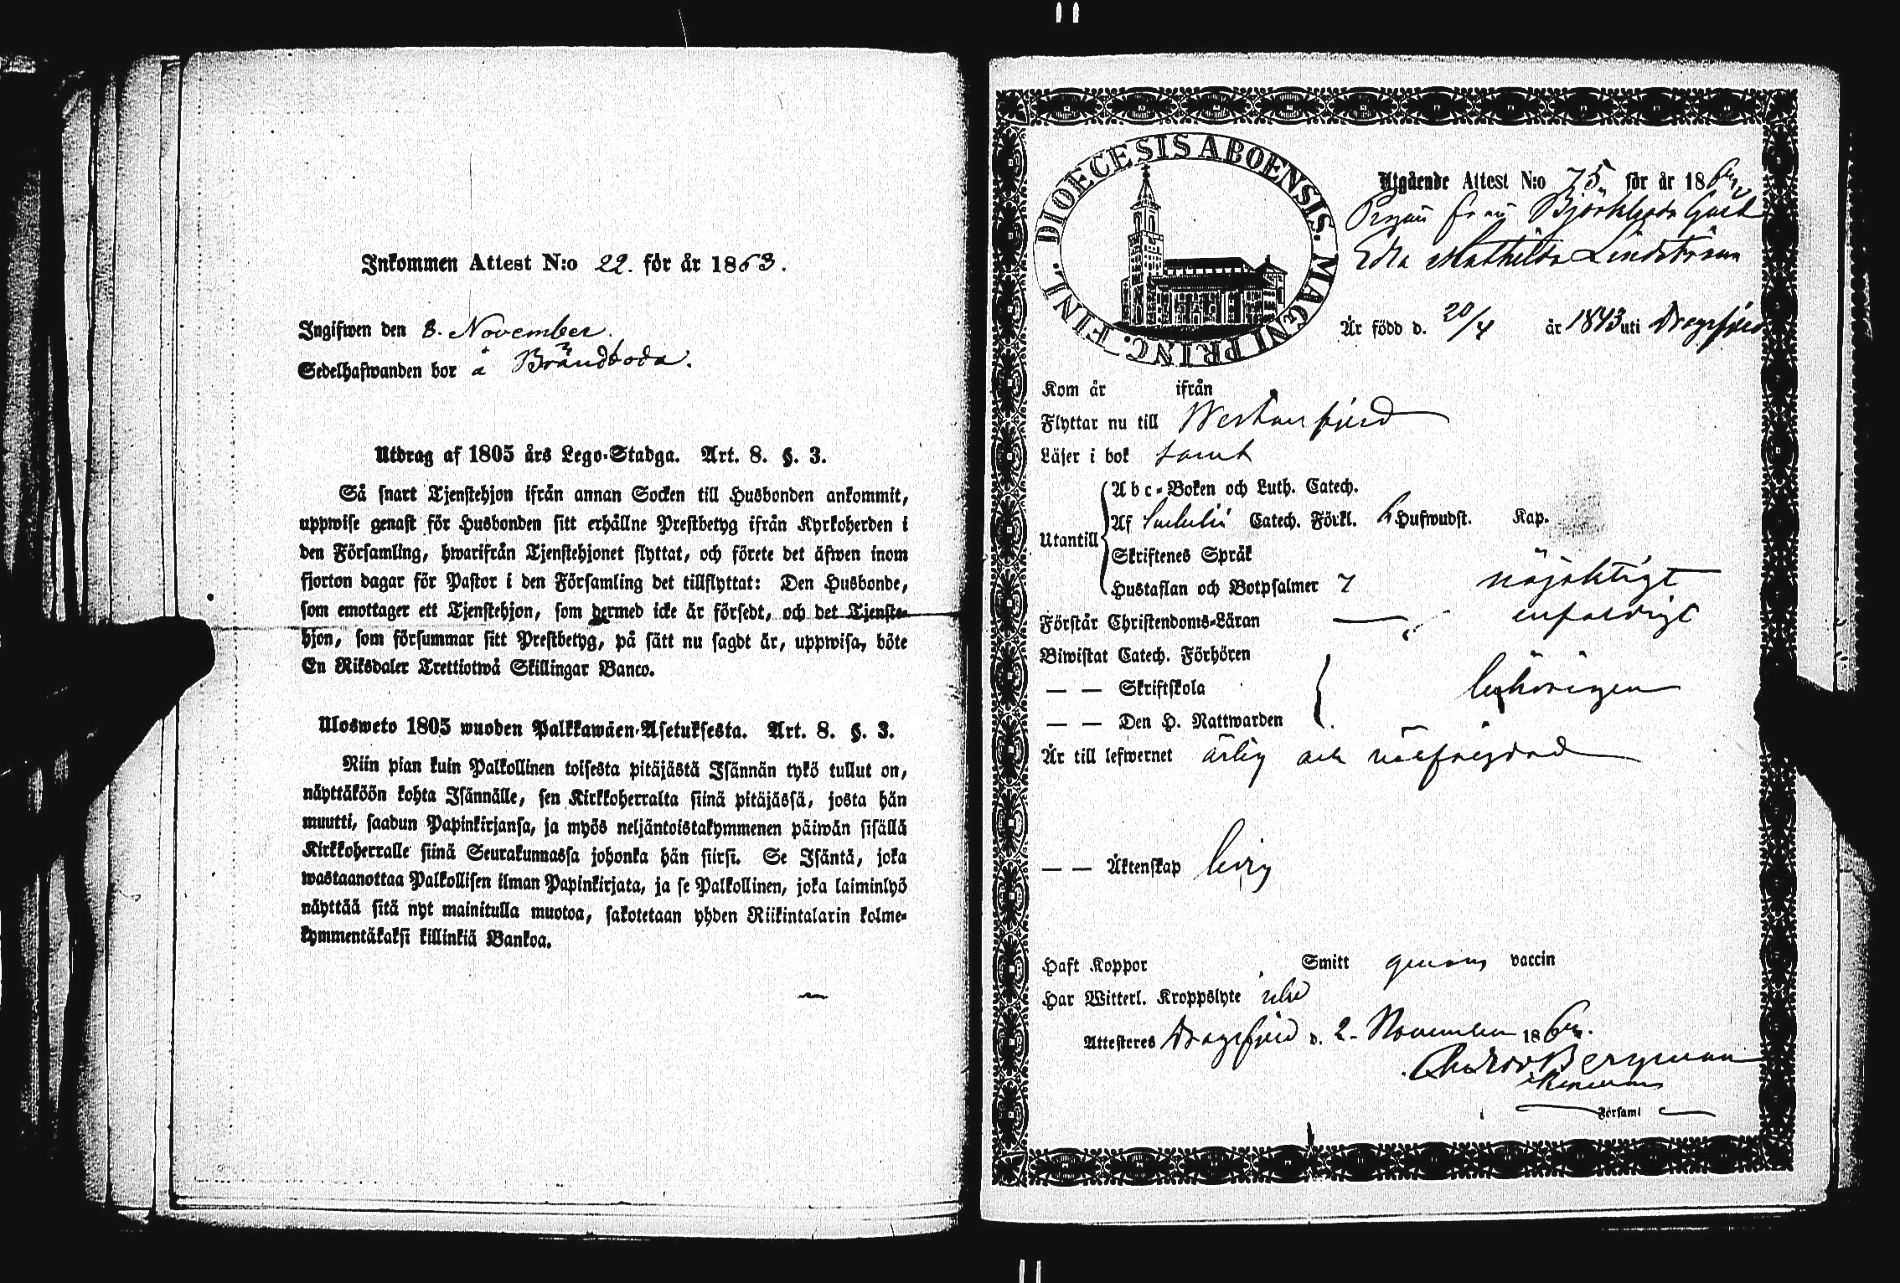 Inkommen Attest N:o 22. för år 1863.
Ingifwen den 8. November.
Sedelhafwanden bor å Brändboda.
Utdrag af 1805 års Lego-Stadga. Art. 8. §. 3.
Så snart Tjenstehjon ifrån annan Socken till Husbonden ankommit,
uppwise genast för Husbonden sitt erhållne Prestbetyg ifrån Kyrkoherden i
den Församling, hwarifrån Tjenstehjonet flyttat, och förete det äfwen inom
fjorton dagar för Pastor i den Församling det tillflyttat: Den Husbonde,
som emottager ett Tjenstehjon, som dermed icke är försedt, och det Tjenste-
hjon, som försummar sitt Prestbetyg, på sätt nu sagdt är, uppwisa, böte
En Riksdaler Trettiotwå Skillingar Banco.
Ulosweto 1805 wuoden Palkkawäen-Asetuksesta. Art. 8. §. 3.
Niin pian kuin Palkollinen toisesta pitäjästä Isännän tykö tullut on,
näyttäköön kohta Isännälle, sen Kirkkoherralta siinä pitäjässä, josta hän
muutti, saadun Papinkirjansa, ja myös neljäntoistakymmenen päiwän sisällä
Kirkkoherralle siinä Seurakunnassa johonka hän siirsi. Se Isäntä, joka
wastaanottaa Palkollisen ilman Papinkirjata, ja se Palkollinen, joka laiminlyö
näyttää sitä nyt mainitulla muotoa, sakotetaan yhden Riikintalarin kolme-
kymmentäkaksi killinkiä Bankoa.
DIOECESIS ABOENSIS. MAGNI PRINC. FINL.
Utgående Attest N:o 75 för år 186
Pigan från Björkboda Gård
Edla Mathilda Lindström
Är född d. 20/4 år 1843 uti Dragsfjerd
Kom år ifrån
Flyttar nu till Westanfjerd
Läser i bok samt
Utantill
Abc-Boken och Luth. Catech.
Af Catech. Förkl. Hufwudst. Kap.
Skriftenes Språk
Hustaflan och Botpsalmer 7 nöjaktigt
Förstår Christendoms-Läran enfaldigt
Biwistat Catech. Förhören
— — Skriftskola behörigen
— — Den H. Nattwarden
Är till lefwernet ärlig och wälfrejdad
— — Äktenskap ledig
Haft Koppor Smitt genom vaccin
Har Witterl. Kroppslyte icke
Attesteras Dragsfjerd d. 2 November 186
Bergman
Församl